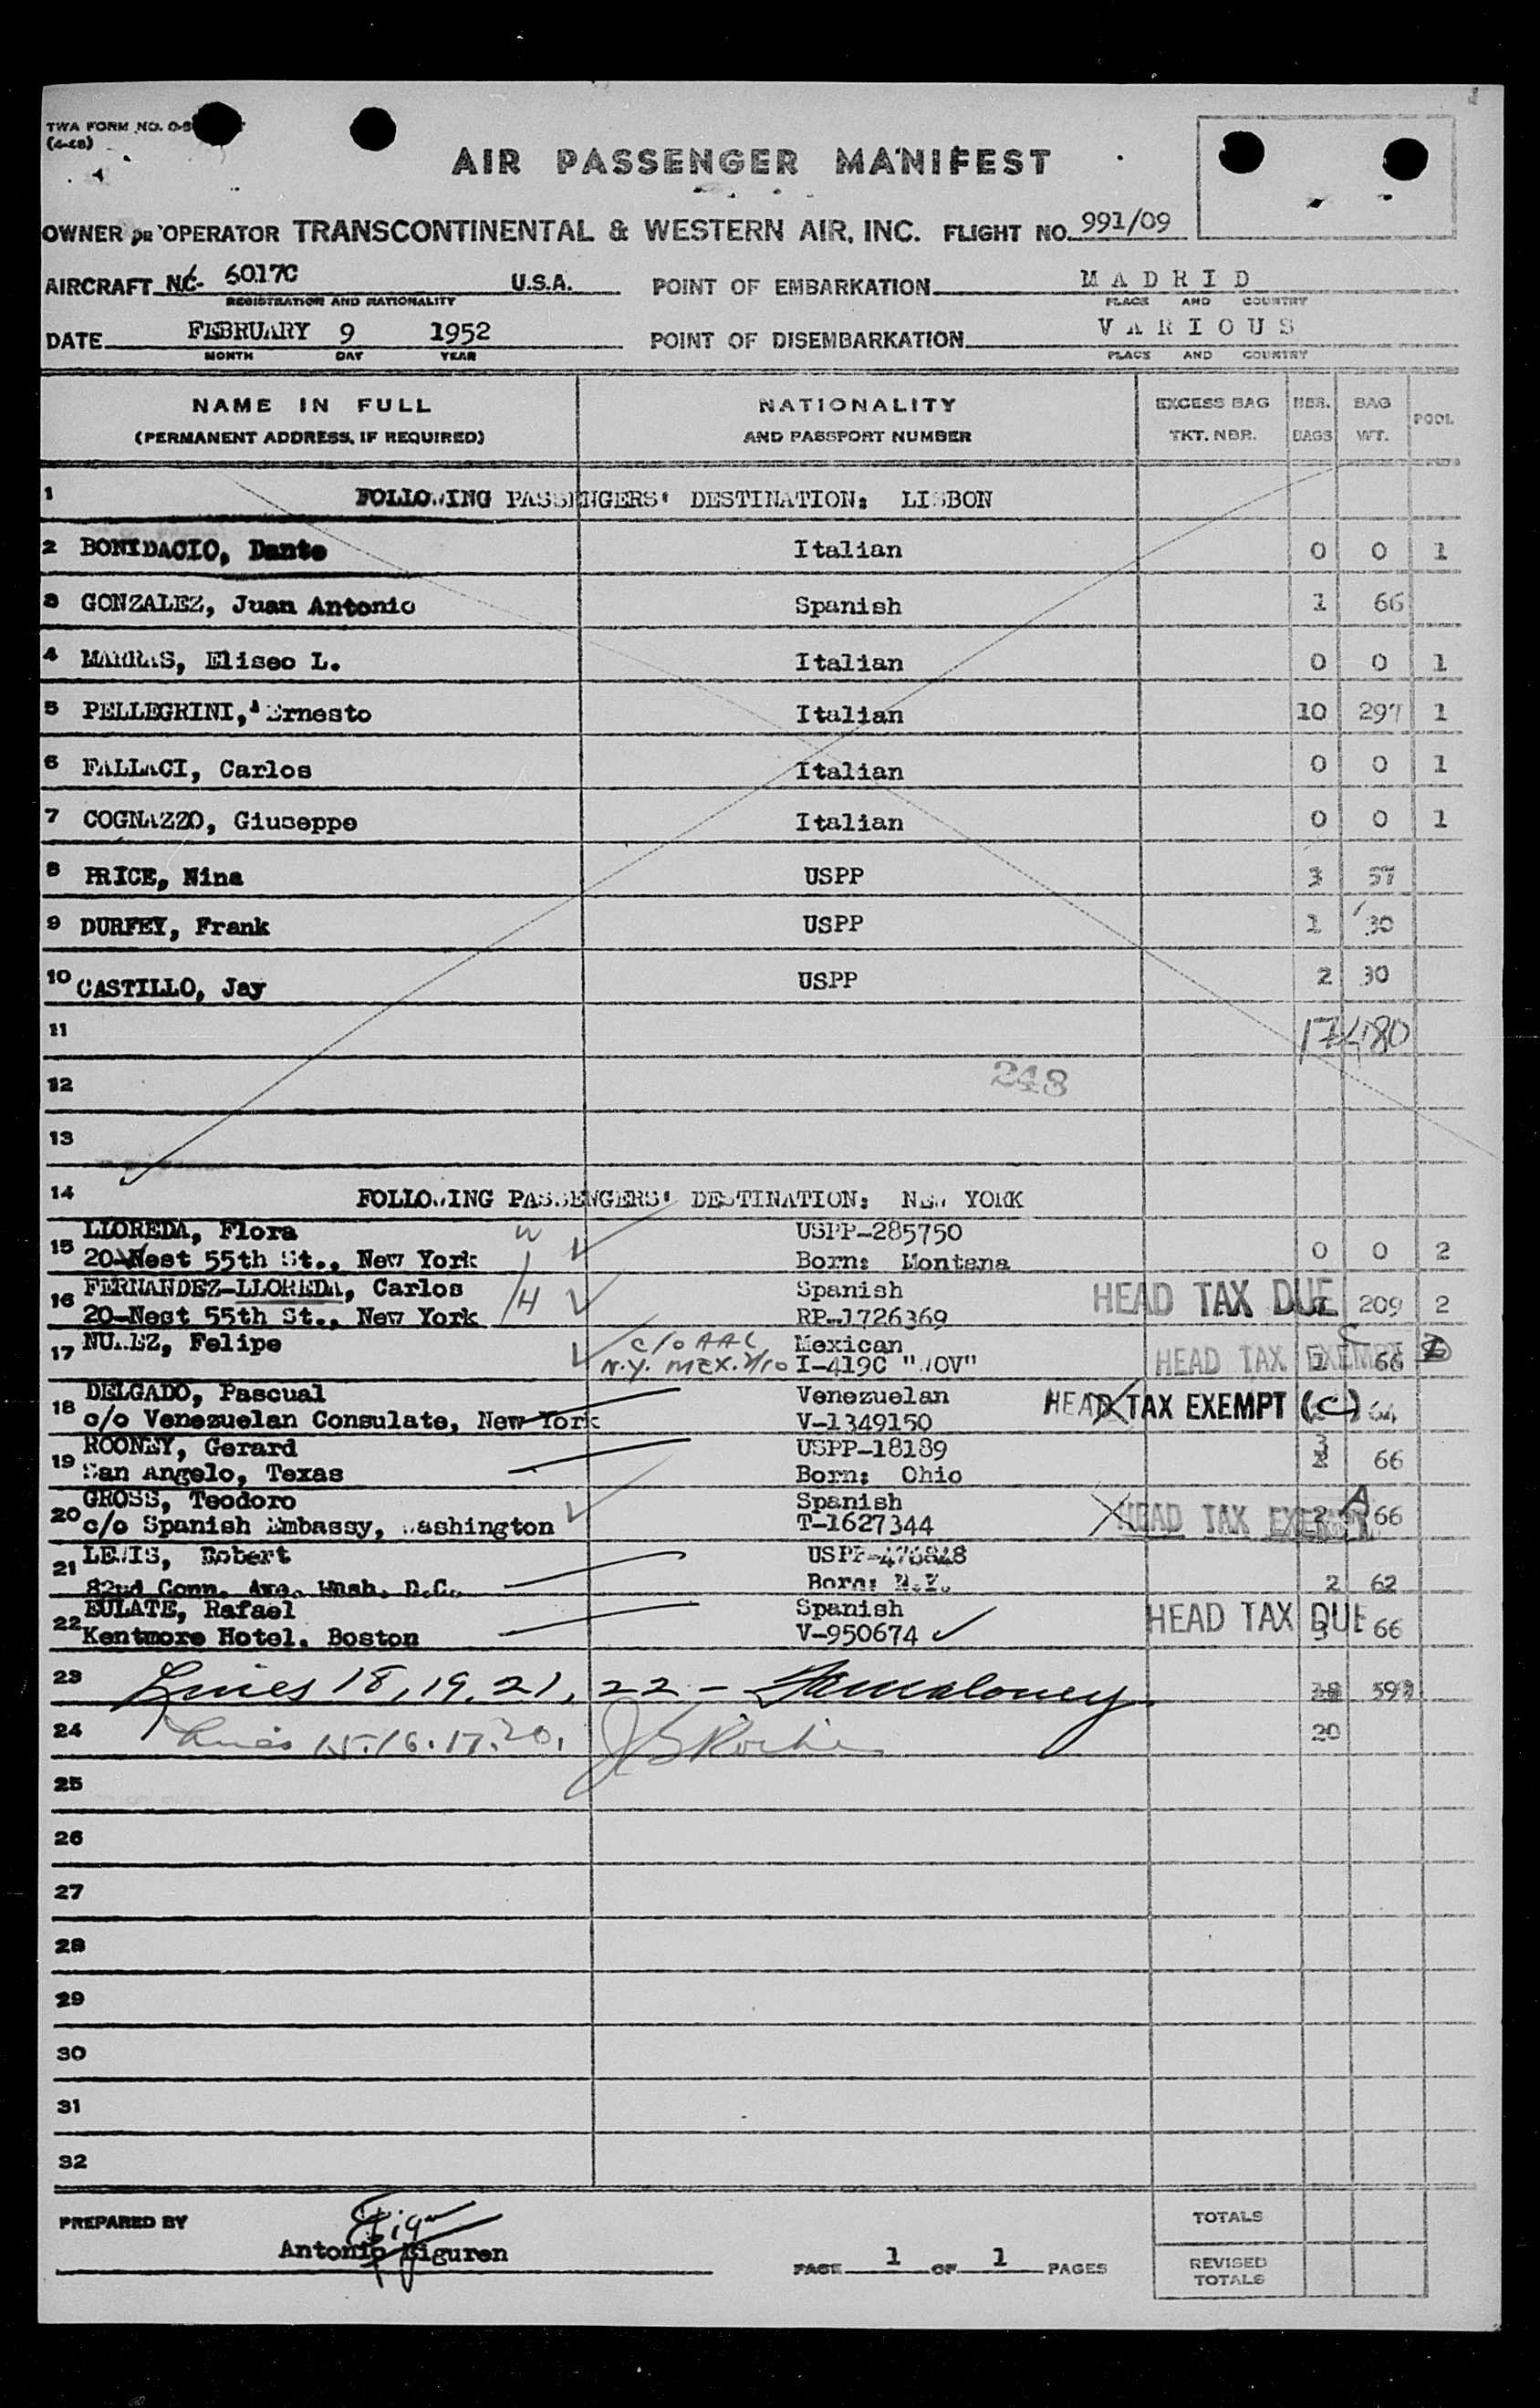 TWA FORM NO.
(4-48)
AIR PASSENGER MANIFEST
OWNER OR OPERATOR TRANSCONTINENTAL & WESTERN AIR, INC. FLIGHT NO. 991/09
AIRCRAFT NC- 6017C U.S.A. POINT OF EMBARKATION MADRID
REGISTRATION AND NATIONALITY PLACE AND COUNTRY
DATE FEBRUARY 9 1952 POINT OF DISEMBARKATION VARIOUS
MONTH DAY YEAR PLACE AND COUNTRY
NAME IN FULL NATIONALITY EXCESS BAG NBR. BAG POOL
(PERMANENT ADDRESS, IF REQUIRED) AND PASSPORT NUMBER TKT. NBR. BAGS WT.
1 FOLLOWING PASSENGERS' DESTINATION: LISBON
2 BONIDACIO, Dante Italian 0 0 1
3 GONZALEZ, Juan Antonio Spanish 1 66
4 MARRAS, Eliseo L. Italian 0 0 1
5 PELLEGRINI, Ernesto Italian 10 297 1
6 FALLACI, Carlos Italian 0 0 1
7 COGNAZZO, Giuseppe Italian 0 0 1
8 PRICE, Nina USPP 3 57
9 DURFEY, Frank USPP 1 30
10 CASTILLO, Jay USPP 2 30
11 17 480
12 248
13
14 FOLLOWING PASSENGERS' DESTINATION: NEW YORK
LLOREDA, Flora USPP-285750
15 20-West 55th St., New York Born: Montana 0 0 2
FERNANDEZ-LLOREDA, Carlos Spanish HEAD TAX DUE 209 2
16 20-West 55th St., New York RP-1726369
NUÑEZ, Felipe c/o AAC Mexican
17 N.Y. MEX. 2/10 I-419C "NOV" HEAD TAX EXEMPT 1 66
DELGADO, Pascual Venezuelan HEAD TAX EXEMPT (C) 64
18 c/o Venezuelan Consulate, New York V-1349150
ROONEY, Gerard USPP-18189 3
19 San Angelo, Texas Born: Ohio 2 66
GROSS, Teodoro Spanish A
20 c/o Spanish Embassy, Washington T-1627344 HEAD TAX EXEMPT 2 66
LEWIS, Robert USPP-476848
21 82nd Conn. Ave. Wash. D.C. Born: N.Y. 2 62
EULATE, Rafael Spanish HEAD TAX DUE
22 Kentmore Hotel, Boston V-950674 66
23 Lines 18, 19, 21, 22 -
24 Lines 15.16.17.20. 20
25
26
27
28
29
30
31
32
PREPARED BY
Antonio Eiguren
PAGE 1 OF 1 PAGES
TOTALS
REVISED
TOTALS